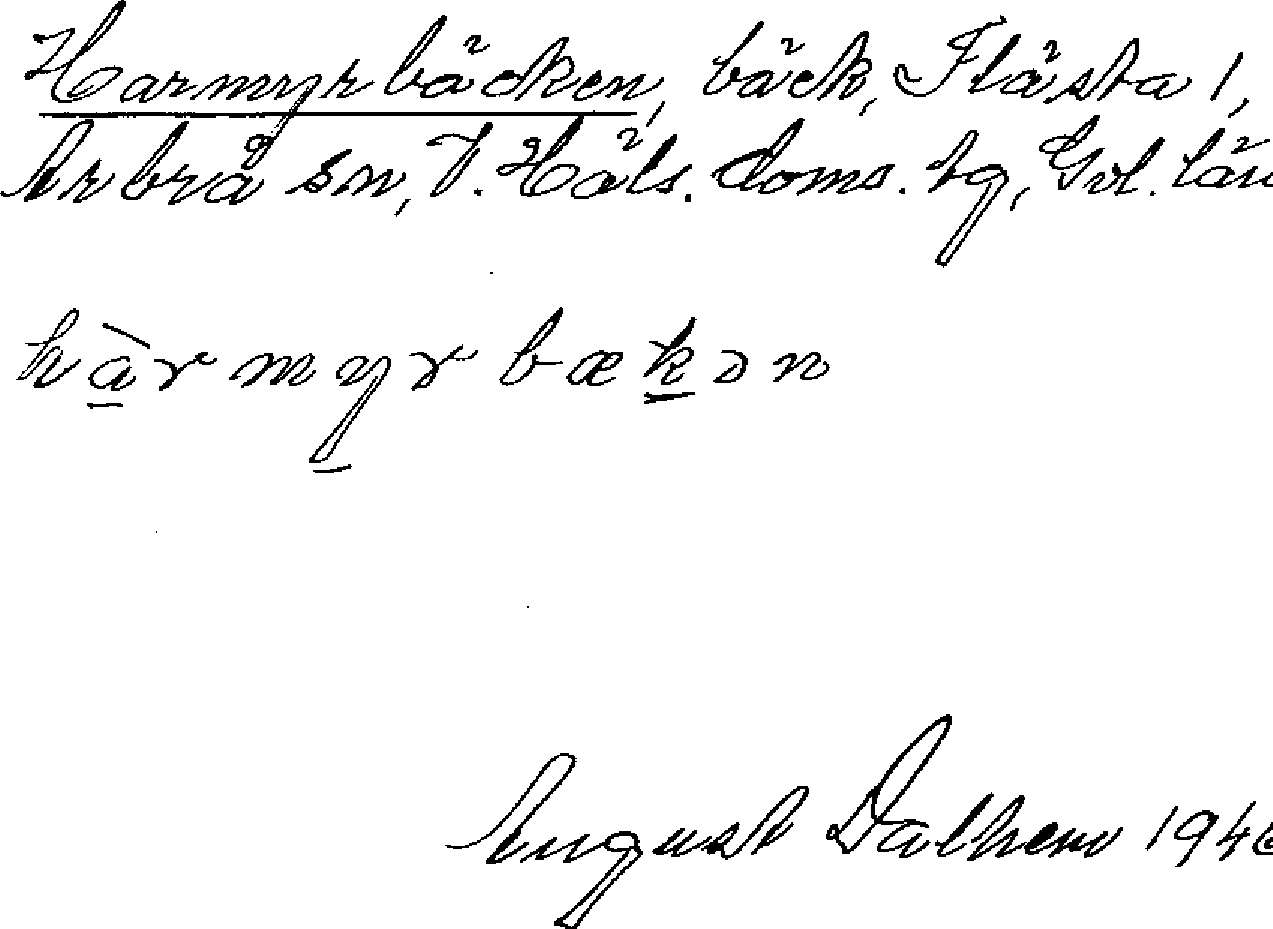 Harmyrbäcken, bäck, Flästa 1,
Arbrå sn, V. Häls. doms. tg, Gvl. län
hàrmyrbækən
August Dalhem